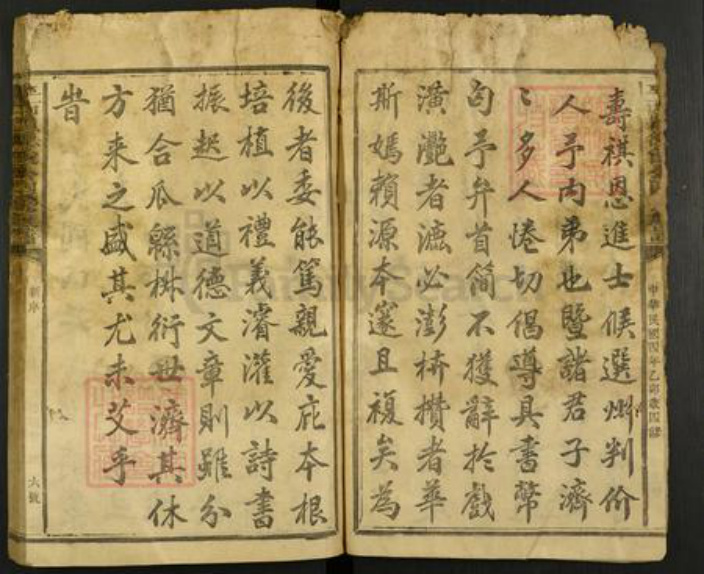 壽祺恩進士候選州判价
人予內弟也暨諸君子濟
〻多人惓切倡導具書幣
匄予弁首簡不獲辭於戲
潢灔者濜必澎枿攢者華
斯嫣賴源本邃且複矣為
後者委能篤親愛庇本根
培植以禮義濬灌以詩書
振起以道德文章則雖分
猶合瓜緜椒衍世濟其休
方来之盛其尤未艾乎
旹
中華民國四年乙卯歲四修
新序
大號